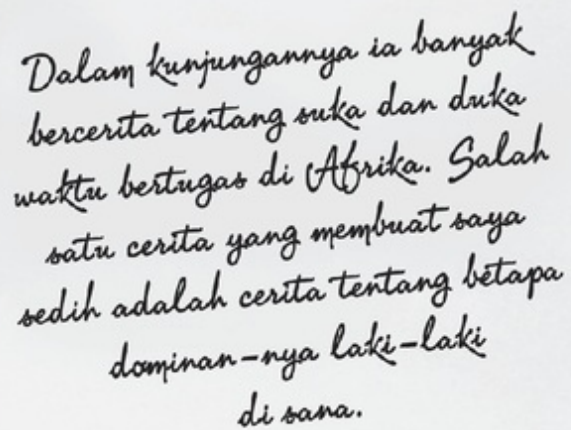 Dalam kunjungannya ia banyak
bercerita tentang suka dan duka
waktu bertugas di Afrika. Salah
satu cerita yang membuat saya
sedih adalah cerita tentang betapa
dominan-nya laki-laki
di sana.